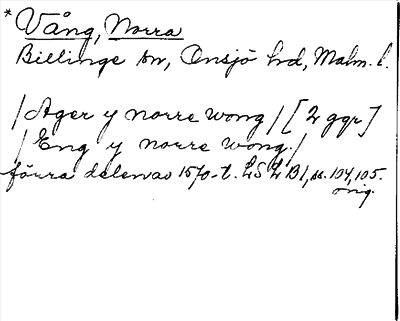 * Vång, Norra
Billinge sn, Onsjö hd, Malm. l.
/Ager y norre wong/ [2 ggr]
/Eng y norre wong./
förra delen av 1570-t. LSLB1, ss. 104, 105.
orig.